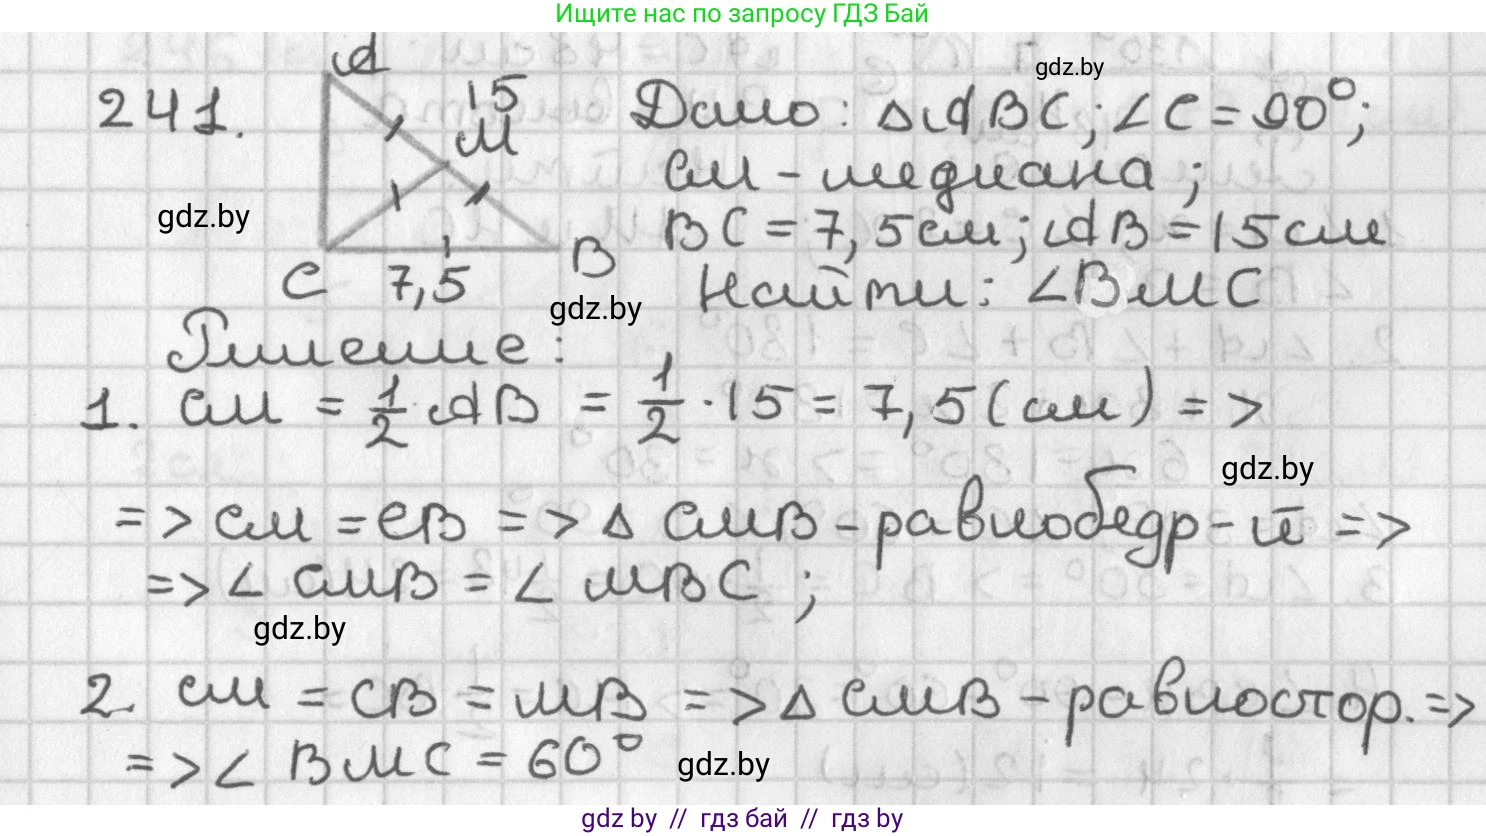 Ищите нас по запросу ГДЗ Бай
gdz.by
241.
A
15
M
C
7,5
B
Дано: △ABC; ∠C = 90°;
CM - медиана;
BC = 7,5 см; AB = 15 см
Найти: ∠BMC
gdz.by
gdz.by
Решение:
1. CM = 1/2 AB = 1/2 · 15 = 7,5 (см) =>
gdz.by
=> CM = CB => △ CMB - равнобедр-й =>
=> ∠ CMB = ∠ MBC ;
gdz.by
2. CM = CB = MB => △ CMB - равностор. =>
=> ∠ BMC = 60°
gdz.by
gdz.by // гдз бай // гдз by